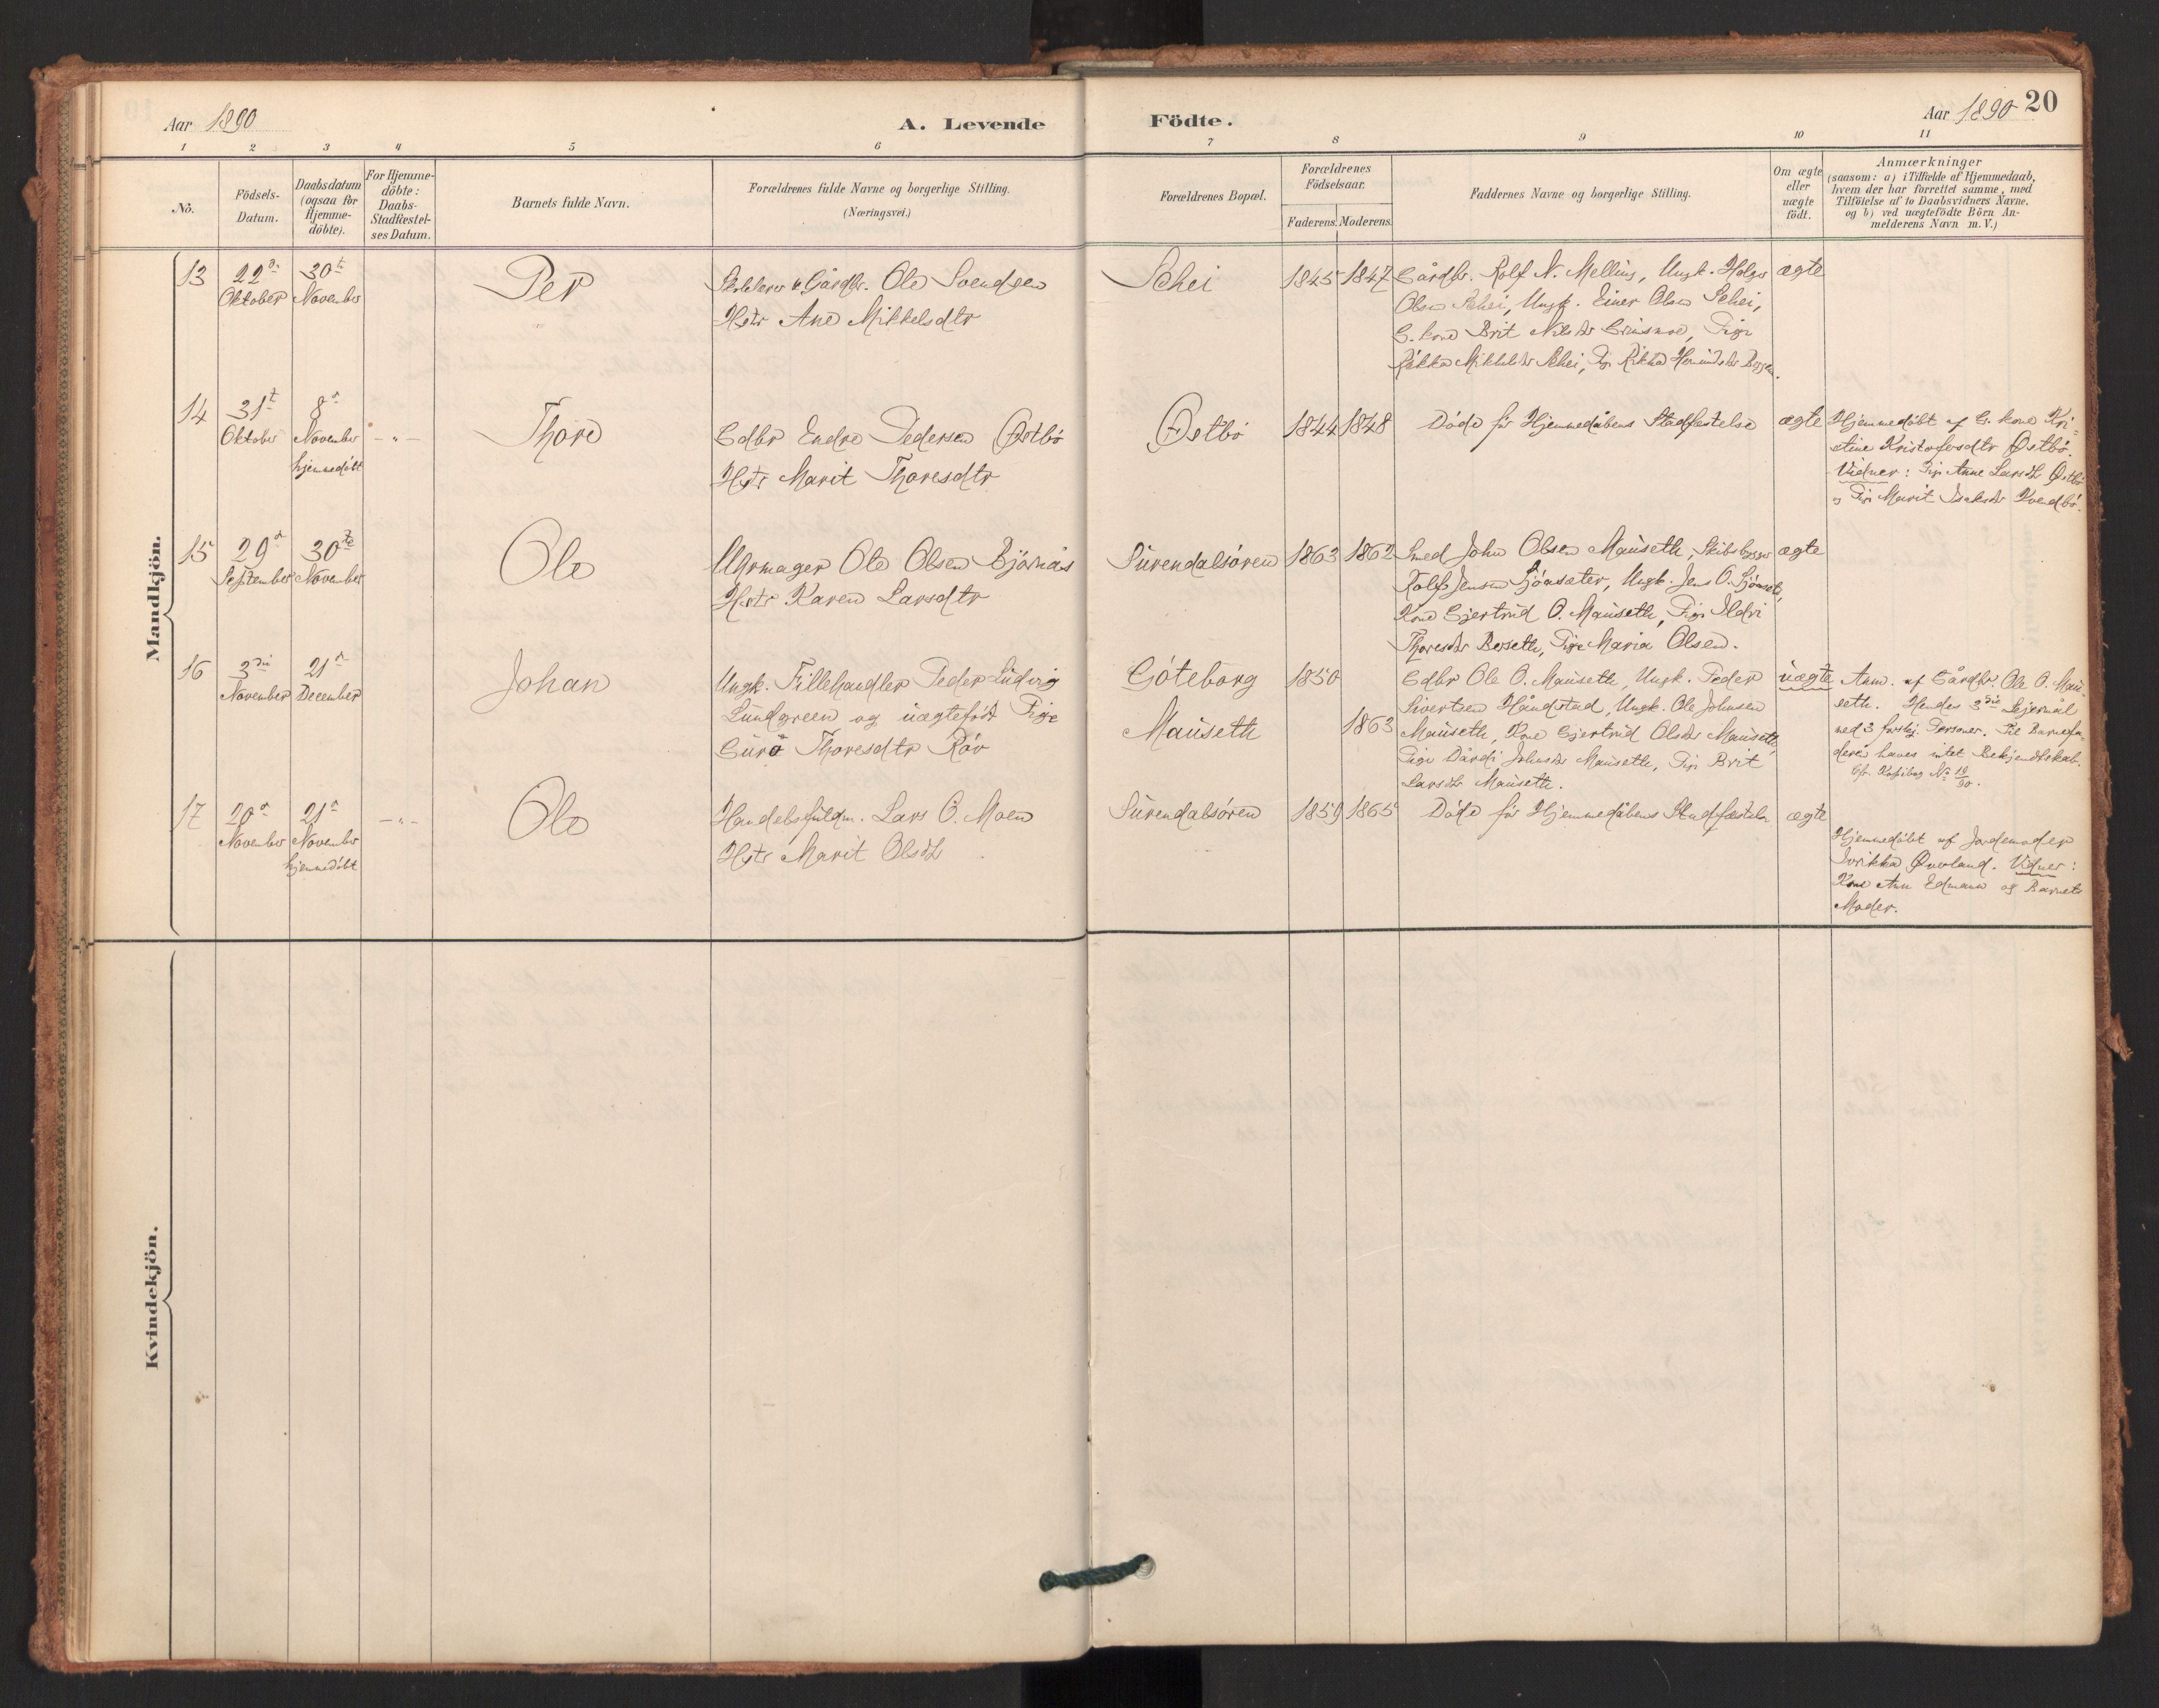 Aar 1890
A. Levende
Födte.
Aar 1890
20
1 2 3 4 5 6 7 8 9 10 11
No.
Födsels-
Datum.
Daabsdatum
(ogsaa for
Hjemme-
döbte).
For Hjemme-
döbte:
Daabs-
Stadfæstel-
ses Datum.
Barnets fulde Navn.
Forældrenes fulde Navne og borgerlige Stilling.
(Næringsvei.)
Forældrenes Bopæl.
Forældrenes
Födselsaar.
Faderens. Moderens.
Faddernes Navne og borgerlige Stilling.
Om ægte
eller
uægte
födt.
Anmærkninger
(saasom: a) i Tilfælde af Hjemmedaab,
hvem der har forrettet samme, med
Tilföielse af to Daabsvidners Navne.
og b) ved uægtefödte Börn An-
melderens Navn m. V.)
Mandkjön.
13
22d
Oktober
30t
November
Per
Gårdbr. Ole Svendsen
Hstr Ane Mikkelsdtr
Schei
1845 1847
Gårdbr. Rolf N. Melling, Ungk. Holger
Olsen Schei, Ungk. Einer Olsen Schei,
G. kone Brit Nilsdtr Grimsmoe, Pige
Rikka Mikkelsdtr Schei, Pig. Rikka
ægte
14
31t
Oktober
8d
November
hjemmedöbt
- " -
Thore
Gdbr Endre Pedersen Østbö
Hstr Marit Thoresdtr
Østbö
1844 1848
Döde för Hjemmedåbens Stadfæstelse
ægte
Hjemmedöbt af G. kone Kri-
stine Kristofersdtr Østbö.
Vidner: Pige Anne Larsdtr Østbö
og Pige Marit Isaksdtr Kvendbö.
15
29d
September
30te
November
Ole
Uhrmager Ole Olsen Björnås
Hstr Karen Larsdtr
Surendalsören
1863 1862
Smed John Olsen Mauseth, Skibsbygger
Rolf Jensen Sjöasæter, Ungk. Jens O. Sjöasæt.,
Kone Gjertrud O. Mauseth, Pige Ildri
Thoresdtr Berseth, Pige Maria Olsen.
ægte
16
3die
November
21d
December
Johan
Ungk. Fillehandler Peder Ludvig
Lundgreen og uægtefödt Pige
Guro Thoresdtr Röv
Göteborg
Mauseth
1850
1863
Gdbr Ole O. Mauseth, Ungk. Peder
Sivertsen Håndstad, Ungk. Ole Johnsen
Mauseth, Kone Gjertrud Olsdtr Mauseth,
Pige Dårdi Johnsdtr Mauseth, Pige Brit
Larsdtr Mauseth.
uægte
Anm. af Gårdbr. Ole O. Mau-
seth. Hendes 3die Leiermål
med 3 forskj. Personer. Til Barnefa-
deren haves intet Bekjendtskab.
Cfr. Kopibog No 19/90.
17
20d
November
21d
November
hjemmedöbt
- " -
Ole
Handelsfuldm. Lars O. Moen
Hstr Marit Olsdtr
Surendalsören
1859 1865
Döde för Hjemmedåbens Stadfæstelse
ægte
Hjemmedöbt af Jordemoder
Øverland. Vidner:
Kone Ann Edmann og Barnets
Moder.
Kvindekjön.